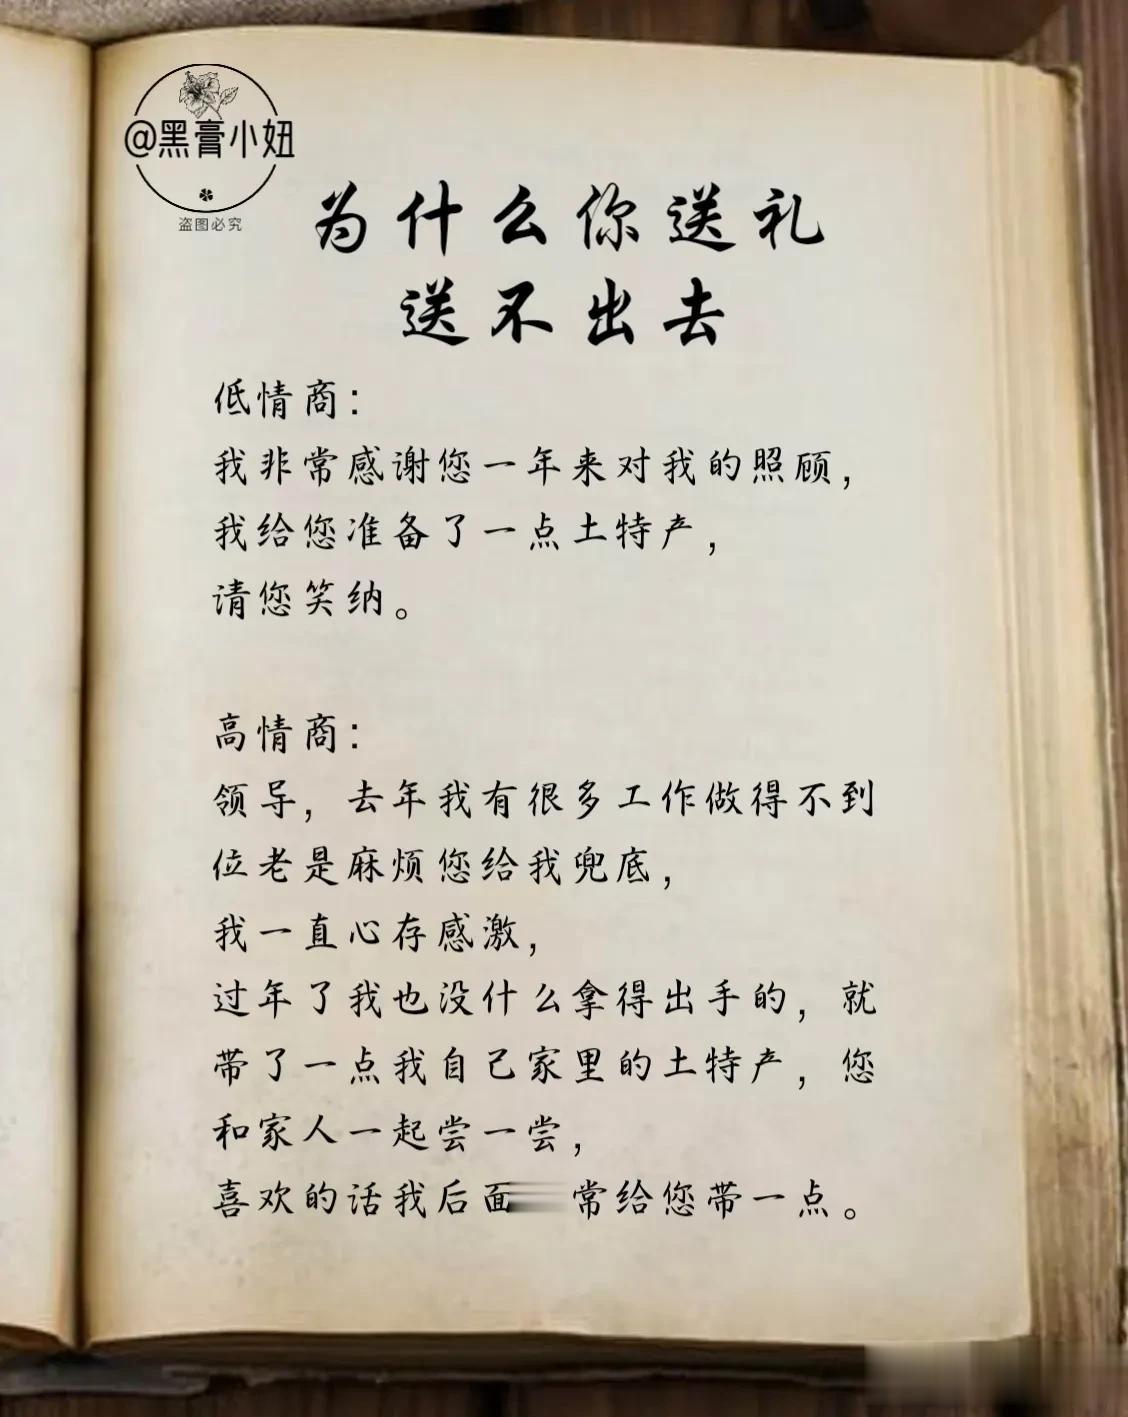 @黑膏小妞
盗图必究
为什么你送礼
送不出去
低情商：
我非常感谢您一年来对我的照顾，
我给您准备了一点土特产，
请您笑纳。
高情商：
领导，去年我有很多工作做得不到
位老是麻烦您给我兜底，
我一直心存感激，
过年了我也没什么拿得出手的，就
带了一点我自己家里的土特产，您
和家人一起尝一尝，
喜欢的话我后面常给您带一点。